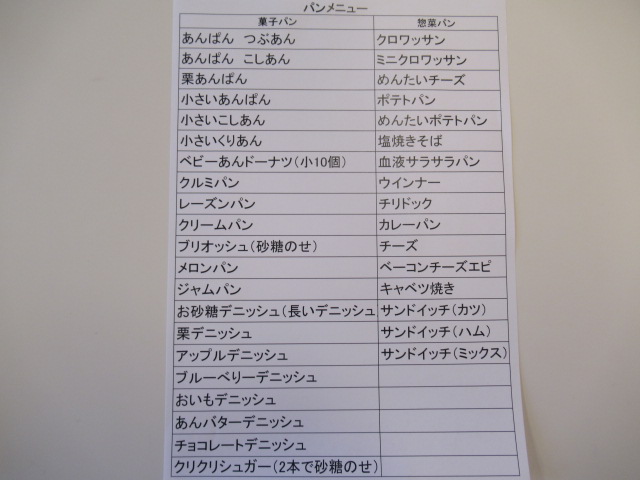 パンメニュー
菓子パン 惣菜パン
あんぱん つぶあん クロワッサン
あんぱん こしあん ミニクロワッサン
栗あんぱん めんたいチーズ
小さいあんぱん ポテトパン
小さいこしあん めんたいポテトパン
小さいくりあん 塩焼きそば
ベビーあんドーナツ(小10個) 血液サラサラパン
クルミパン ウインナー
レーズンパン チリドック
クリームパン カレーパン
ブリオッシュ(砂糖のせ) チーズ
メロンパン ベーコンチーズエピ
ジャムパン キャベツ焼き
お砂糖デニッシュ(長いデニッシュ サンドイッチ(カツ)
栗デニッシュ サンドイッチ(ハム)
アップルデニッシュ サンドイッチ(ミックス)
ブルーベリーデニッシュ
おいもデニッシュ
あんバターデニッシュ
チョコレートデニッシュ
クリクリシュガー(2本で砂糖のせ)